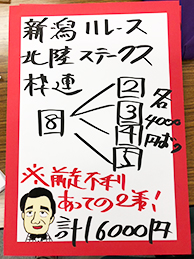 新潟11レース
北陸ステークス
枠連
8
2
3
4
5
各
4000
円ばり
※前走不利
あっての2着!
計16000円